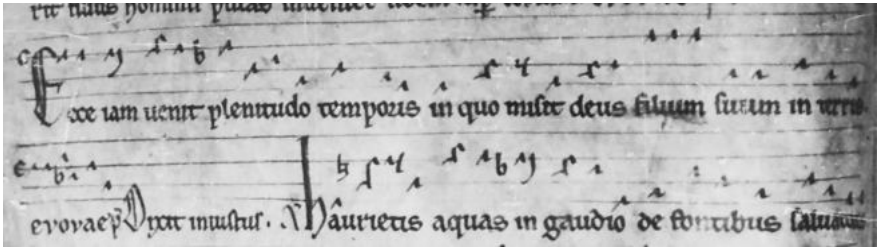 Ecce iam uenit plenitudo temporis in quo misit deus filium suum in terris
evovae p Dixit iniustus. Haurietis aquas in gaudio de fontibus saluatoris